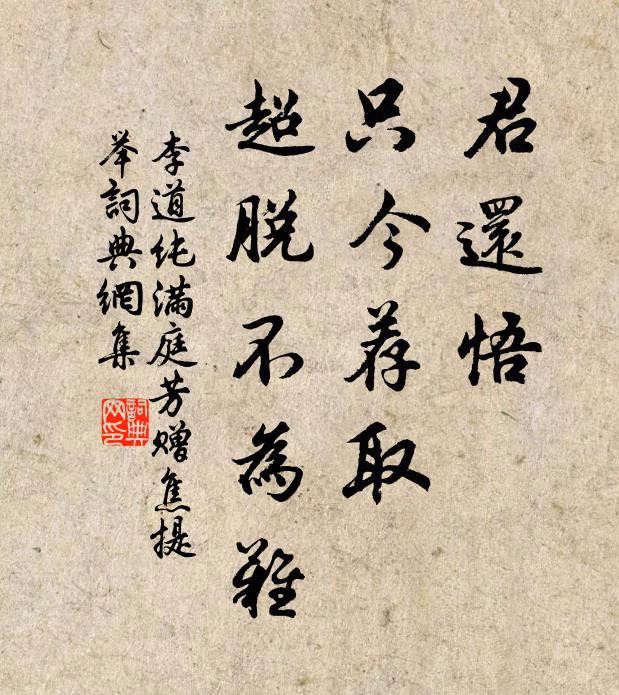 君還悟
只今荐取
超脱不為難
李道纯满庭芳赠焦提
举詞典網集
詞典网印